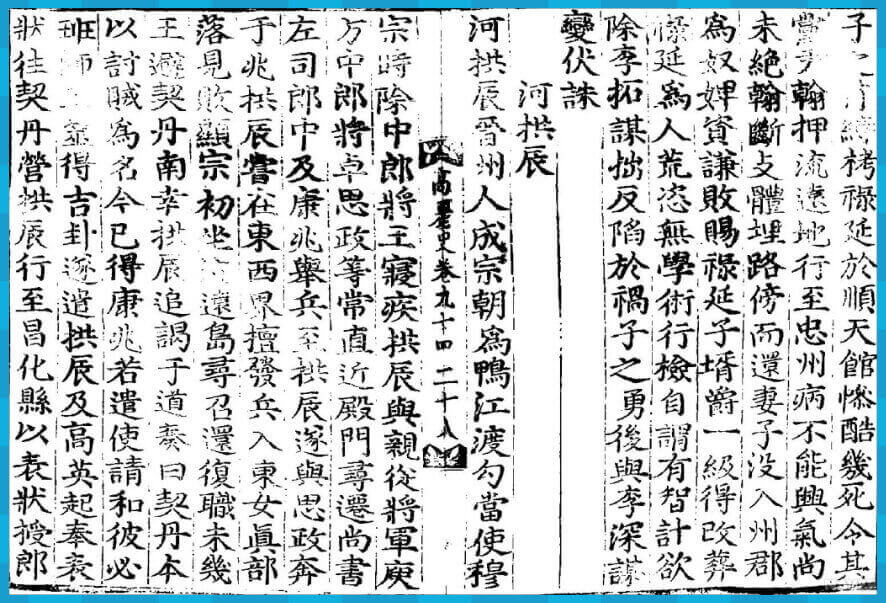 子之縛栲祿延於順天館慘酷幾死令其
黨尹翰押流遠地行至忠州病不能興氣尚
未絶翰斷支體埋路傍而還妻子没入州郡
爲奴婢資謙敗賜祿延子壻爵一級得改葬
祿延爲人荒恣無學術行檢自謂有智計欲
除李拓謀拙反陷於禍子之勇後與李深謀
變伏誅
河拱辰
河拱辰晉州人成宗朝爲鴨江渡勾當使穆
高麗史卷九十四 二十八
宗時除中郎將王寢疾拱辰與親從將軍庾
方中郎將卓思政等常直近殿門尋遷尚書
左司郎中及康兆舉兵至拱辰遂與思政奔
于兆拱辰嘗在東西界擅發兵入東女眞部
落見敗顯宗初坐遠島尋召還復職未幾
王避契丹南幸拱辰追謁于道奏曰契丹本
以討賊爲名今已得康兆若遣使請和彼必
班師王筮得吉卦遂遣拱辰及高英起奉表
狀往契丹營拱辰行至昌化縣以表狀授郎